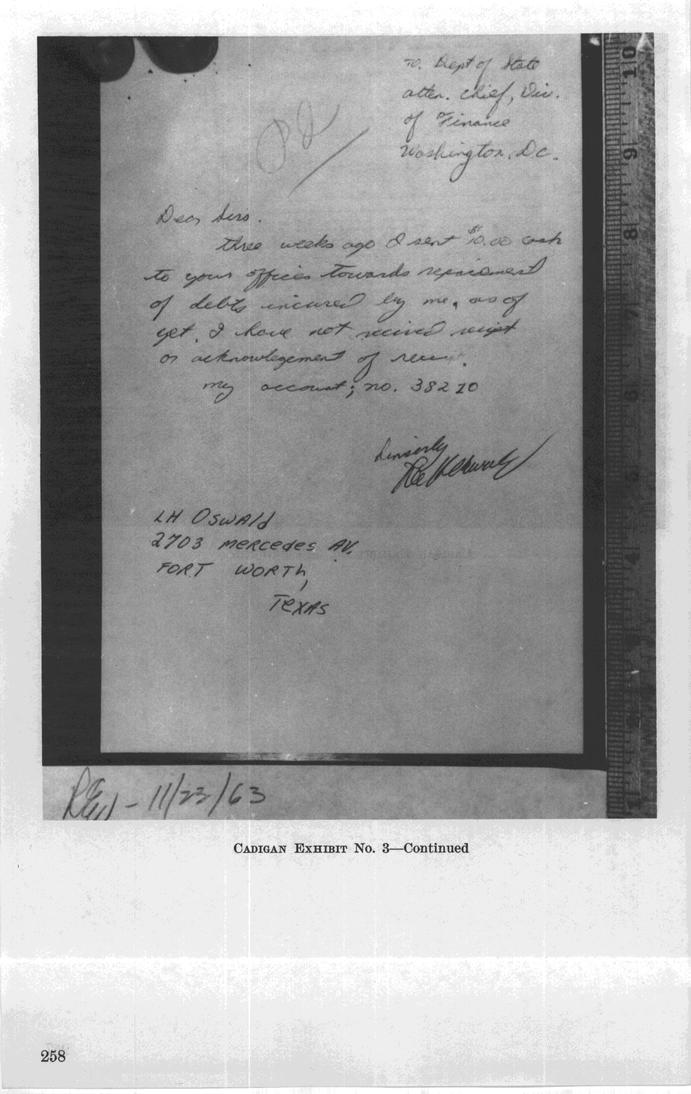 To. Dept of State
atten. chief, Div.
of Finance
Washington, D.C.
Dear Sirs.
three weeks ago I sent $10.00 cash
to your offices towards repaiement
of debts incured by me, as of
yet, I have not recived recipt
or acknowlegement of
my account; no. 38210
Sinserly
Lee H Oswald
LH Oswald
2703 Mercedes Av.
FORT WORTH,
TEXAS
- 11/23/63
10
9
8
7
6
5
4
3
2
1
CADIGAN EXHIBIT No. 3—Continued
258